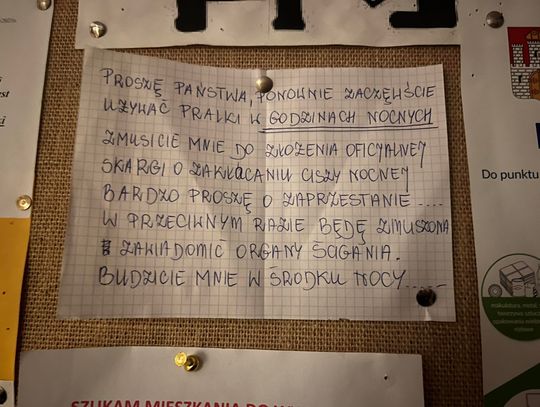 PROSZĘ PAŃSTWA, PONOWNIE ZACZĘLIŚCIE
UŻYWAĆ PRALKI W GODZINACH NOCNYCH
ZMUSICIE MNIE DO ZŁOŻENIA OFICJALNEJ
SKARGI O ZAKŁÓCANIU CISZY NOCNEJ
BARDZO PROSZĘ O ZAPRZESTANIE ....
W PRZECIWNYM RAZIE BĘDĘ ZMUSZONA
ZAWIADOMIĆ ORGANY ŚCIGANIA.
BUDZICIE MNIE W ŚRODKU NOCY.....
Do punktu
makulatura, metal
SZUKAM MIESZKANIA DO